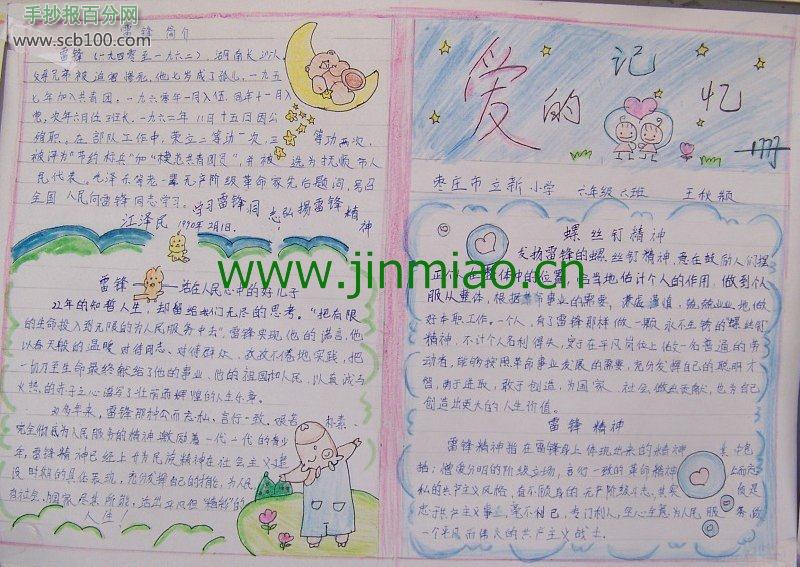 手抄报百分网
www.scb100.com
雷锋 简介
雷锋(一九四零至一九六二),湖南长沙人,
父母兄弟被迫害惨死,他七岁成了孤儿,一九五
七年加入共青团,一九六零年一月入伍,同年十一月入
党,次年六月任班长,一九六二年八月十五日因公
殉职。在部队工作中,荣立二等功一次,三等功两次,
被评为"节约标兵"和"模范共青团员",并被选为抚顺市人
民代表。毛泽东等老一辈无产阶级革命家先后题词,号召
全国人民向雷锋同志学习。
学习雷锋同志弘扬雷锋精神
江泽民 1990年2月1日
雷锋——活在人民心中的好儿子
22年的短暂人生,却留给我们无尽的思考。"把有限
的生命投入到无限的为人民服务中去"雷锋实现他的诺言,他
以春天般的温暖对待同志、对待群众,孜孜不倦地实践,把
一切乃至生命最终献给了他的事业,他的祖国和人民,以真诚与
火热的赤子之心谱写了壮丽而辉煌的人生乐章。
多年来,雷锋那种公而忘私、言行一致、艰苦朴素、
完全彻底为人民服务的精神激励着一代一代的青少
年,雷锋精神已经上升为民族精神在社会主义建
设时期的具体表现,充分发挥自己的才能,为人民
为社会、国家尽其所能,活出平凡但"精彩"的
人生!
爱的记忆
枣庄市立新小学 六年级六班 王秋颖
螺丝钉精神
发扬雷锋的螺丝钉精神,意在鼓励人们摆
正个人在整体中的位置,恰当地估计个人的作用,做到个人
服从整体,根据革命事业的需要,谦虚谨慎,兢兢业业地做
好本职工作。一个人,有了雷锋那样做一颗永不生锈的螺丝钉
精神,不计个人名利得失,安于在平凡岗位上做一名普通的劳
动者,能够按照革命事业发展的需要,充分发挥自己的聪明才
智,勇于进取,敢于创造,为国家、社会做出贡献,也为自己
创造出更大的人生价值。
雷锋精神
雷锋精神指在雷锋身上体现出来的精神
括:憎爱分明的阶级立场,言行一致的革命精神
私的共产主义风格,奋不顾身的无产阶级斗志,其实
忠于共产主义事业,毫不利己,专门利人,全心全意为人民服务,做
一个平凡而伟大的共产主义战士。
www.jinmiao.cn